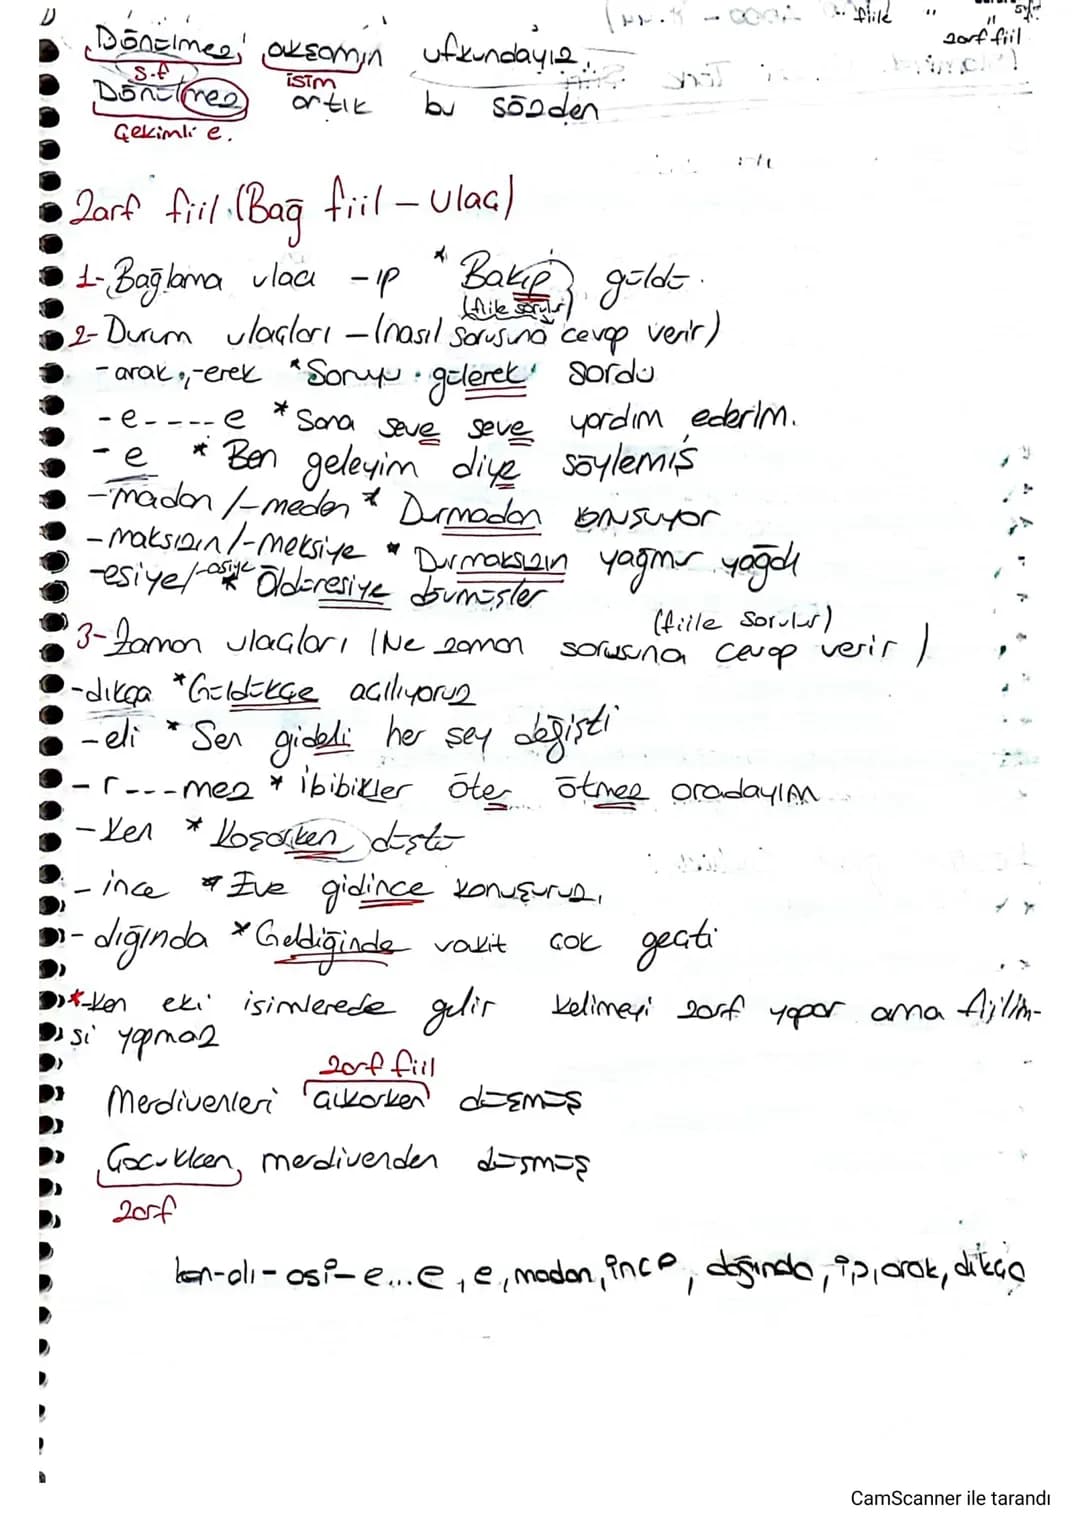 fiile "
zarf fiil
Dönülmez akşamın ufkundayız
s.f isim
Dönülmez artık bu sözden
Çekimli e.
Zarf fiil (Bağ fiil - Ulaç)
1- Bağlama ulacı -ıp * Bakıp güldü.
(fiile sorulur)
2- Durum ulaçları - (nasıl sorusuna cevap verir)
- arak, -erek * Soruyu gülerek sordu
- e - - - - e * Sana seve seve yardım ederim.
- e * Ben geleyim diye söylemiş
- madan / -meden * Durmadan konuşuyor
- maksızın / -meksiye * Durmaksızın yağmur yağdı
-esiye/-asiye * Öldüresiye dövmüşler
(fiille sorulur)
3- Zaman ulaçları (Ne zaman sorusuna cevap verir)
-dıkça * Güldükçe açılıyoruz
- eli * Sen gideli her şey değişti
- r - - - mez * İbibikler öter ötmez oradayım
- Ken * Koşarken düştü
- ince * Eve gidince konuşuruz.
- dığında * Geldiğinde vakit çok geçti
*-Ken eki isimlerede gelir kelimeyi zarf yapar ama fiilim-
si yapmaz
zarf fiil
Merdivenleri çıkarken düşmüş
Çocukken merdivenden düşmüş
zarf
ken-alı-asi-e...e, e, madan, ince, dığında, ip, arak, dıkça
CamScanner ile tarandı